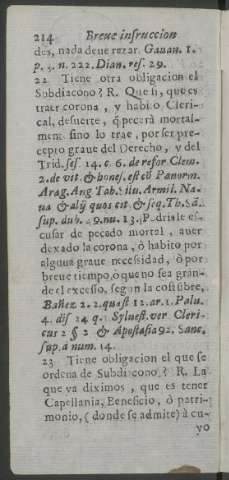 214 Breue insruccion
des, nada deue rezar. Gauan. 1.
p. 3. n. 222. Dian. res. 29.
22 Tiene otra obligacion el
Subdiacono? R. Que si, que es
traer corona, y habito Cleri-
cal, desuerte, q̃ pecarà mortal-
ment. sino lo trae, por ser pre-
cepto graue del Derecho, y del
Trid. ses. 14. c. 6. de refor Clem.
2. de vit. & hones. est cõ Panorm.
Arag. Ang. Tab. Armil. Na-
ua & alij quos cit & seq. Th. Sã.
sup. dub. 49. nu. 13. Podriale es-
cusar de pecado mortal, auer
dexado la corona, ò habito por
alguna graue necessidad, ò por
breue tiempo, ò que no sea gran-
de el excesso, segun la costũbre,
Bañez 2. 2. quæst 12. ar. 1. Palu.
4. dis 24 q. Syluest. ver Cleri-
cus 2 § 2 & Apostasia 92. Sanc.
sup. a num. 14.
23 Tiene obligacion el que se
ordena de Subdiacono? R. La
que ya diximos, que es tener
Capellania, Beneficio, ò patri-
monio, (donde se admite) à cu-
yo